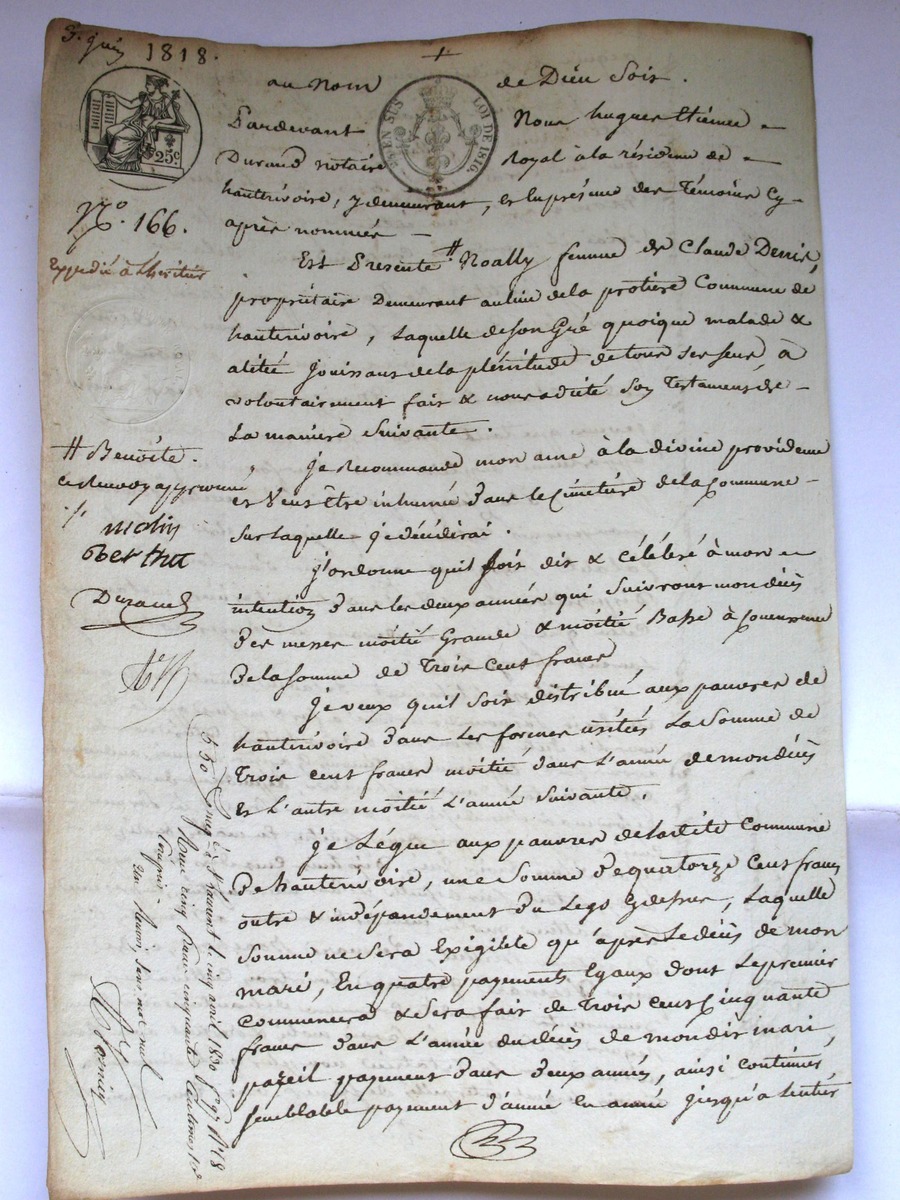 5. juin 1818.
+
au Nom de Dieu Soit.
25c
EN SUS
LOI DE 1816.
Pardevant Nous hugues Etienne
Durand notaire Royal à la résidence de
hauterivoire, y demeurant, et En présence des Témoins Cy-
après nommés
N° 166.
Expedié à l'heritier
Est Presente # Noally femme de Claude Denis,
propriétaire Demeurant au lieu de la protiere Commune de
hauterivoire, Laquelle de son Gré quoique malade &
alitée Jouissant de la plénitude de tous ses sens, a
volontairement fait & nous a dicté Son Testament de
La maniere Suivante.
# Benoite.
ce Renvoy approuvé
molin
Berthet
Durand
Je Recommande mon ame à la divine providence
et Veut être inhumée Dans le Cimetiere de la Commune
Sur Laquelle je décéderai.
J'ordonne qu'il Soit dit & Célébré à mon
intention Dans les deux années qui Suivront mon décès
Des messes moitié Grande & moitié Basse à Concurrence
De la Somme de Trois Cent francs
Je veux qu'il Soit distribué aux pauvres de
hauterivoire Dans Les formes usitées La Somme de
Trois Cent francs moitié dans L'année de mon décès
et L'autre moitié L'année Suivante.
Je Légue aux pauvres de Ladite Commune
De hauterivoire, une Somme De quatorze Cent francs
outre & indépendament Du Legs Cy dessus, Laquelle
Somme ne Sera Exigible qu'après Le décès de mon
mari, En quatre payements Egaux dont Le premier
Commencera & Sera fait de Trois Cent Cinquante
francs Dans L'année du décès de mon dit mari
pareil payement Dans Deux années, ainsi Continué
Semblable payement d'année En année jusqu'à L'entier
Le cinq avril 1830
Reçu cinq francs cinquante centimes